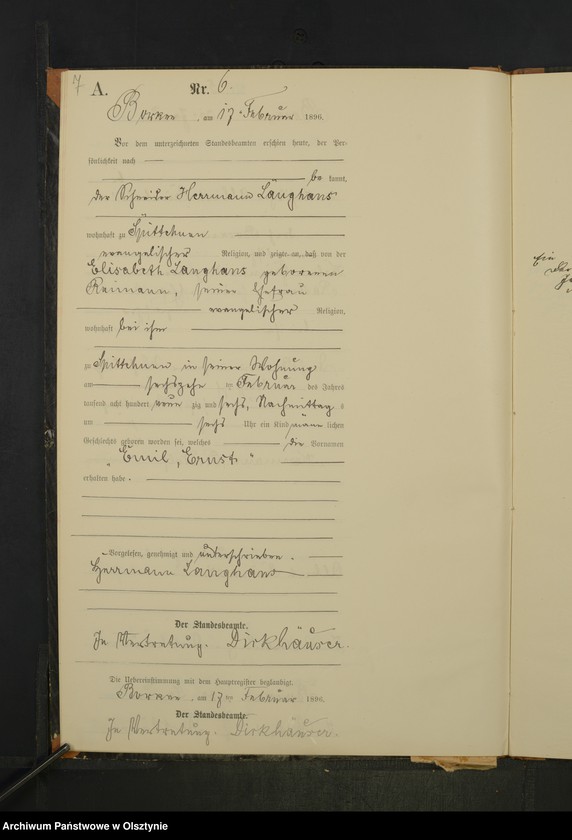 7
A. Nr. 6.
Borken, am 17. Februar 1896.
Vor dem unterzeichneten Standesbeamten erschien heute, der Per-
sönlichkeit nach
be kannt,
der Schneider Herrmann Langhans
wohnhaft zu Spittehnen
evangelischer Religion, und zeigte an, daß von der
Elisabeth Langhans geborenen
Reimann, seiner Ehefrau
evangelischer Religion,
wohnhaft bei ihm
zu Spittehnen in seiner Wohnung
am sechszehn ten Februar des Jahres
tausend acht hundert neun zig und sechs, Nachmittag s
um sechs Uhr ein Kind männ lichen
Geschlechts geboren worden sei, welches die Vornamen
"Emil, Ernst"
erhalten habe.
Vorgelesen, genehmigt und unterschrieben.
Herrmann Langhans
Der Standesbeamte.
In Vertretung. Dirkhäuser.
Die Uebereinstimmung mit dem Hauptregister beglaubigt.
Borken, am 17ten Februar 1896.
Der Standesbeamte.
In Vertretung. Dirkhäuser.
Ein
Archiwum Państwowe w Olsztynie